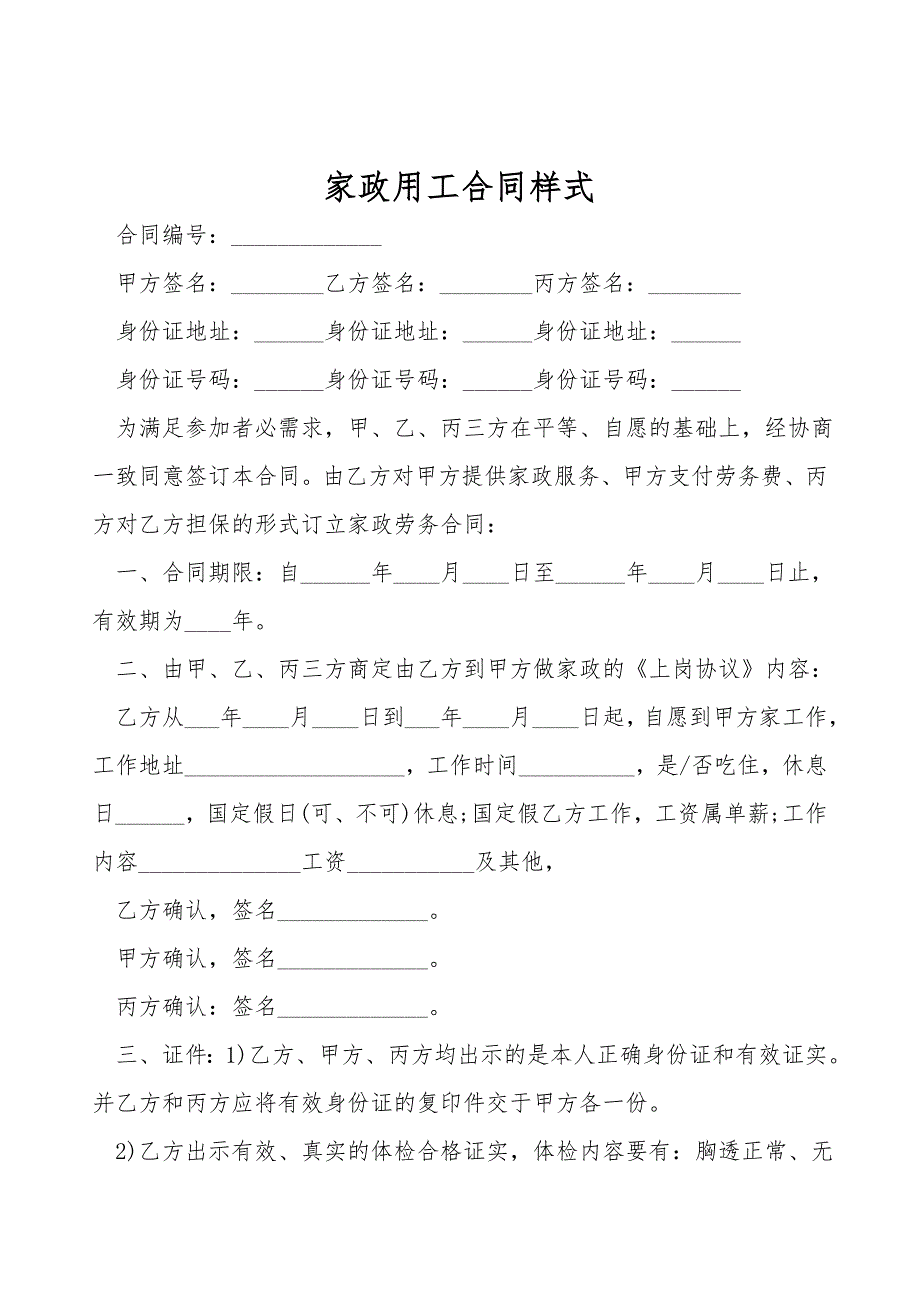 家政用工合同样式
合同编号：_____________
甲方签名：________乙方签名：________丙方签名：________
身份证地址：______身份证地址：______身份证地址：______
身份证号码：______身份证号码：______身份证号码：______
为满足参加者必需求，甲、乙、丙三方在平等、自愿的基础上，经协商
一致同意签订本合同。由乙方对甲方提供家政服务、甲方支付劳务费、丙
方对乙方担保的形式订立家政劳务合同：
一、合同期限：自______年____月____日至______年____月____日止，
有效期为____年。
二、由甲、乙、丙三方商定由乙方到甲方做家政的《上岗协议》内容：
乙方从___年____月____日到___年____月____日起，自愿到甲方家工作，
工作地址___________________，工作时间__________，是/否吃住，休息
日______，国定假日(可、不可)休息;国定假乙方工作，工资属单薪;工作
内容______________工资___________及其他，
乙方确认，签名_____________。
甲方确认，签名_____________。
丙方确认：签名_____________。
三、证件：1)乙方、甲方、丙方均出示的是本人正确身份证和有效证实。
并乙方和丙方应将有效身份证的复印件交于甲方各一份。
2)乙方出示有效、真实的体检合格证实，体检内容要有：胸透正常、无